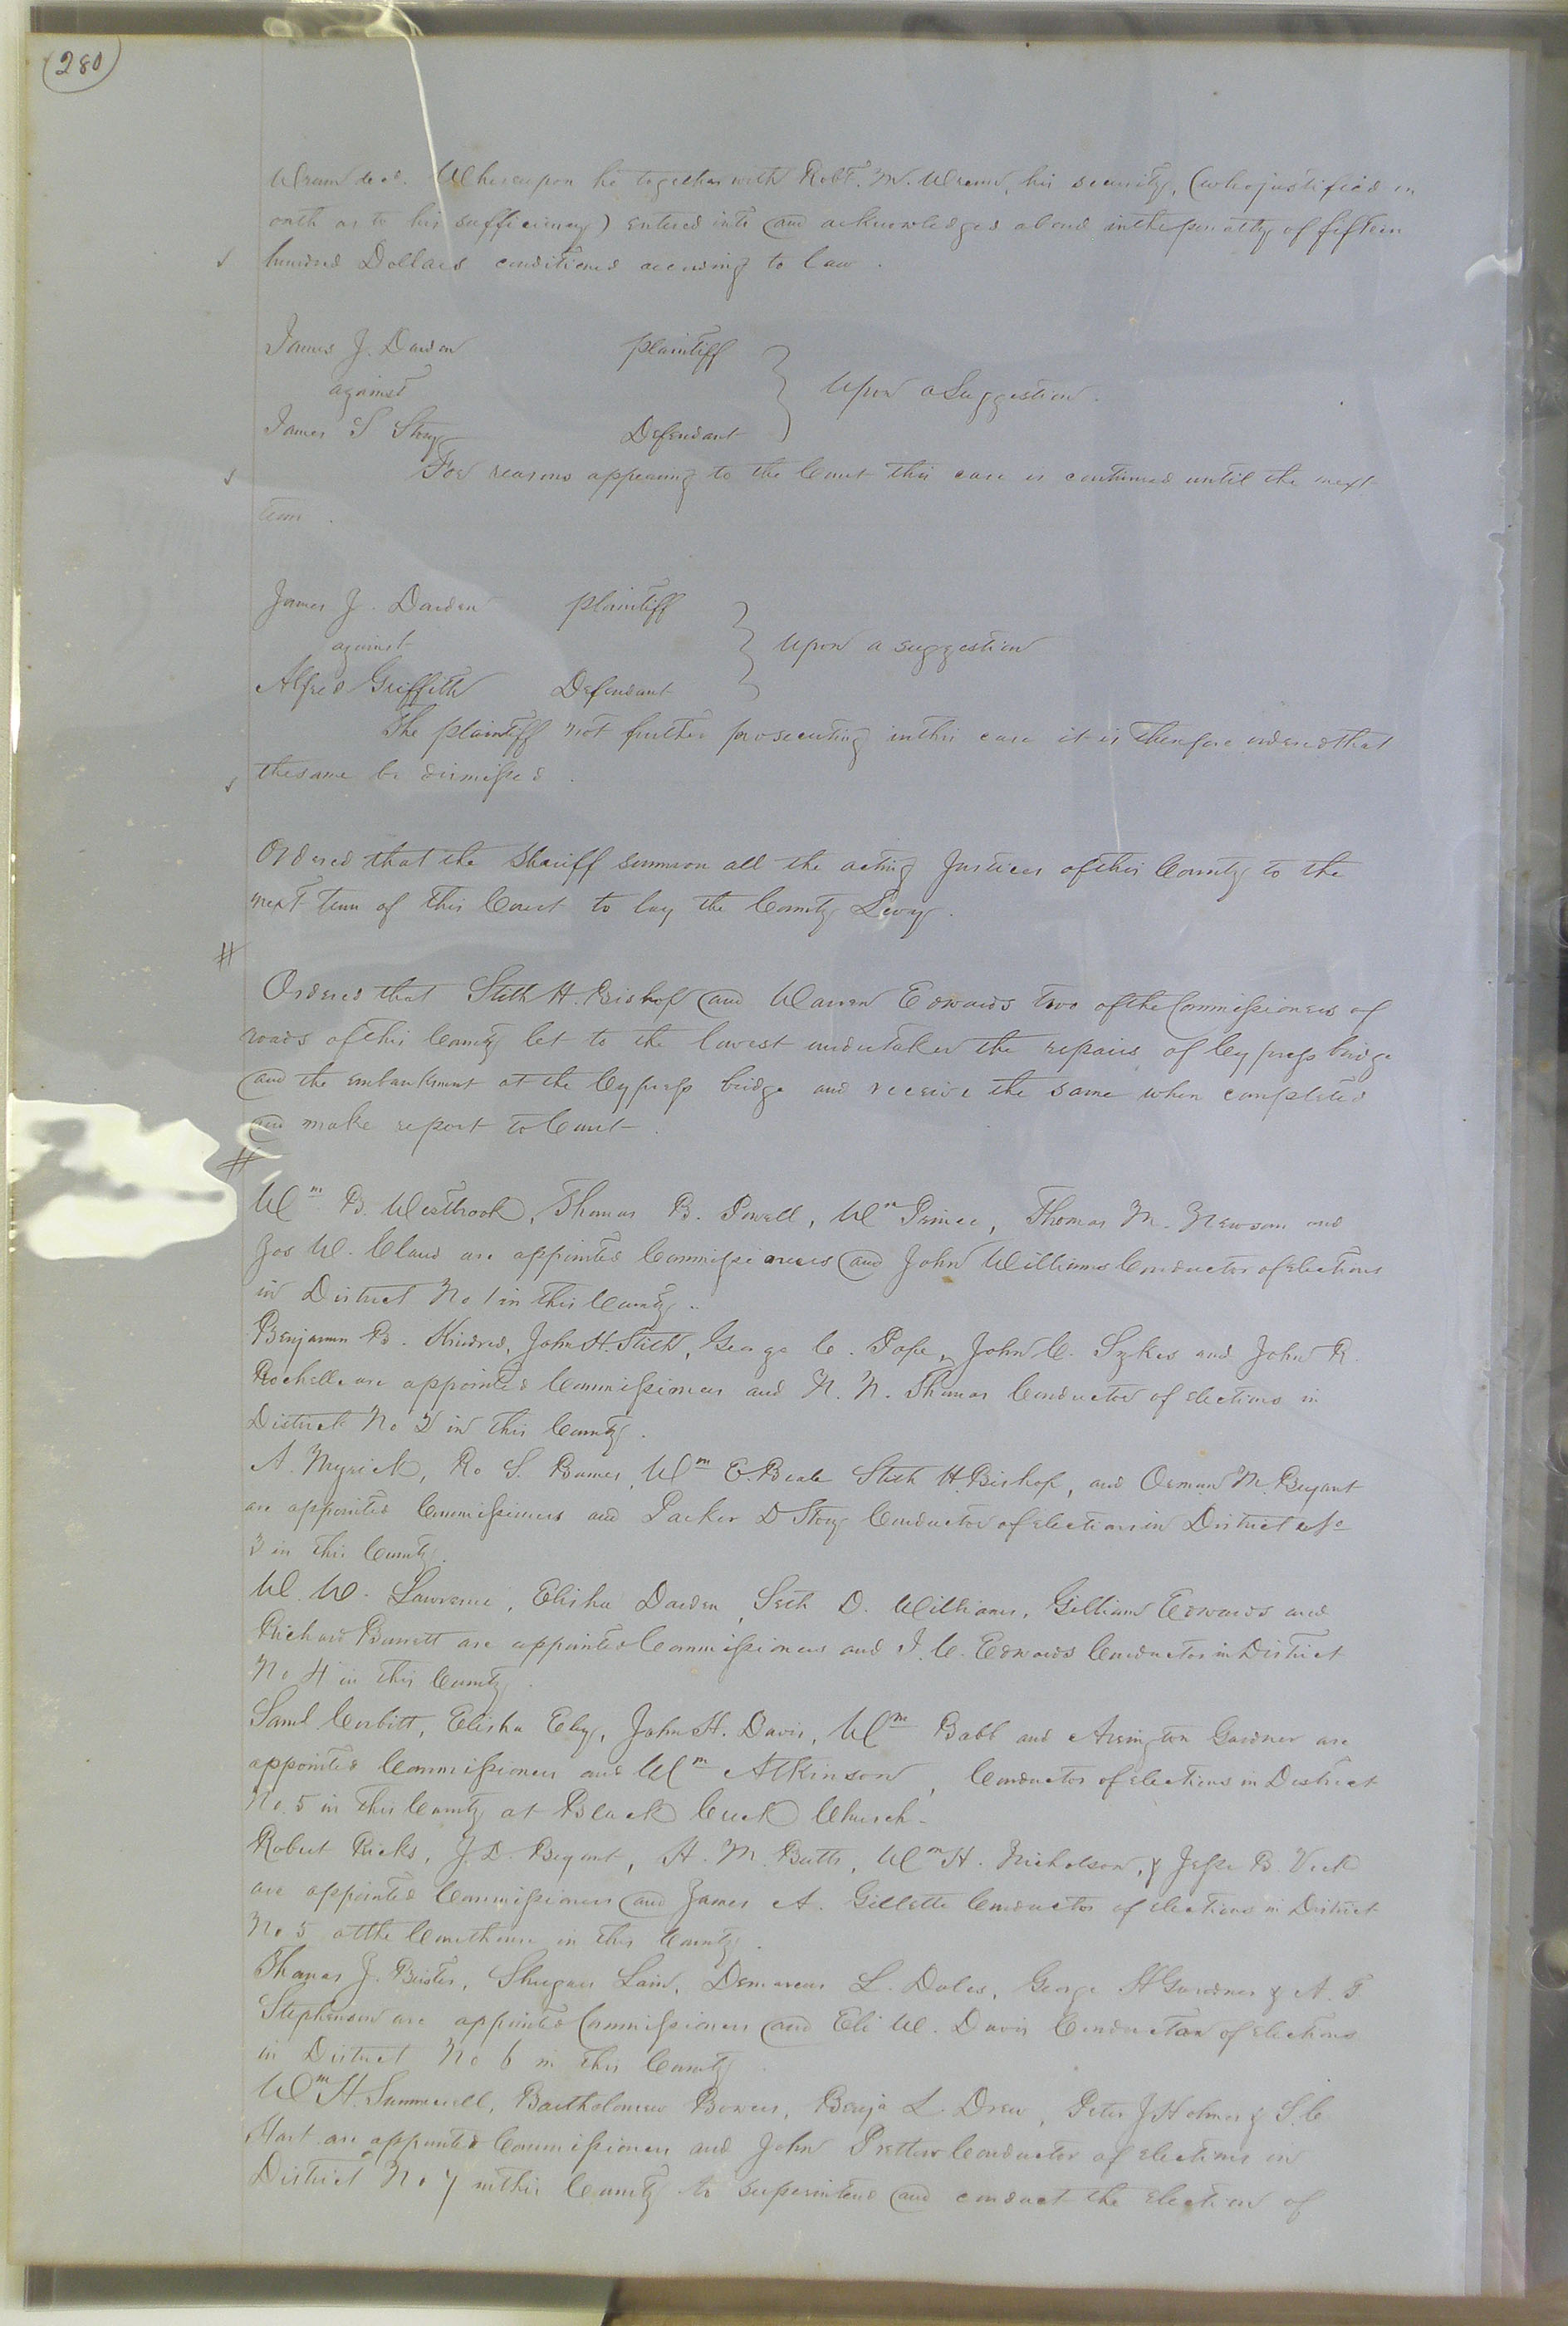 (280)
Urann dec'd. Whereupon he together with Robt. M. Urann, his security, (who justified on
oath as to his sufficiency) entered into and acknowledged a bond in the penalty of fifteen
hundred Dollars conditioned according to law.
James J. Darden plaintiff
against } Upon a Suggestion.
James S Story Defendant
For reasons appearing to the Court this case is continued until the next
term.
James J. Darden plaintiff
against } Upon a suggestion
Alfred Griffith Defendant
The plaintiff not further prosecuting in this case it is therefore ordered that
the same be dismissed.
Ordered that the Sheriff summon all the acting Justices of this County to the
next term of this Court to lay the County Levy.
#
Ordered that Stith H. Bishop and Warren Edwards two of the Commissioners of
roads of this County let to the lowest undertaker the repairs of Cypress bridge
and the embankment at the Cypress bridge and receive the same when completed
and make report to Court.
#
Wm B. Westbrook, Thomas B. Powell, Wm Prince, Thomas M. Newsom and
Jos W. Claud are appointed Commissioners and John Williams Conductor of elections
in District No 1 in this County.
Benjamin B. Kindred, John H. Stith, George C. Pope, John C. Sykes and John R.
Rochelle are appointed Commissioners and N. N. Thomas Conductor of elections in
District No 2 in this County.
A. Myrick, Ro S. Barnes, Wm E. Beale Stith H. Bishop, and Orman M. Bryant
are appointed Commissioners and Parker D Story Conductor of elections in District No
3 in this County.
W. W. Lawrence, Elisha Darden, Seth D. Williams, Gilliam Edwards and
Richard Barrett are appointed Commissioners and J. C. Edwards Conductor in District
No 4 in this County.
Saml Corbitt, Elisha Eley, John H. Davis, Wm Babb and Arrington Gardner are
appointed Commissioners and Wm Atkinson, Conductor of elections in District
No. 5 in this County at Black Creek Church.
Robert Ricks, J. D. Bryant, H. M. Butts, Wm H. Nicholson, & Jesse B. Vick
are appointed Commissioners and James A. Gillette Conductor of elections in District
No 5 at the Courthouse in this County.
Thomas J. Brister, Shugars Lain, Demarcus L. Doles, George H Gardner & A. T.
Stephenson are appointed Commissioners and Eli W. Davis Conductor of elections
in District No 6 in this County.
Wm H. Summerell, Bartholomew Bowers, Benja L. Drew, Peter J Holmes & S. C.
Hart are appointed Commissioners and John Pretlow Conductor of elections in
District No 7 in this County to superintend and conduct the election of